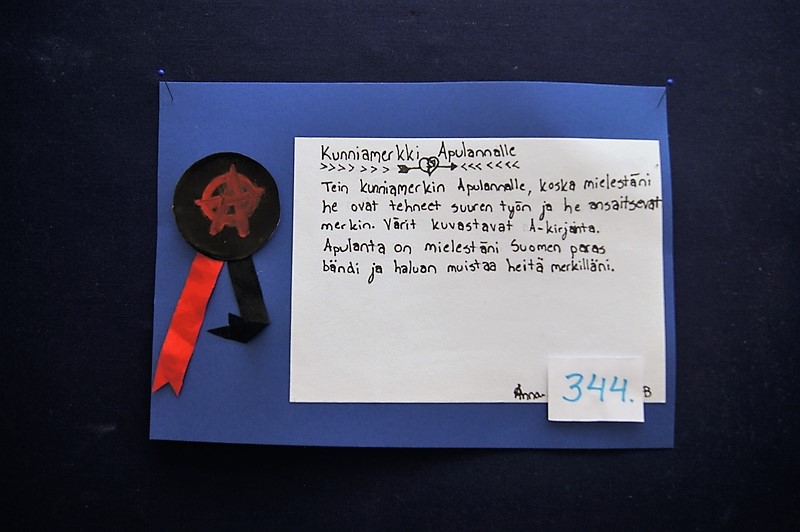 Kunniamerkki Apulannalle
Tein kunniamerkin Apulannalle, koska mielestäni
he ovat tehneet suuren työn ja he ansaitsevat
merkin. Värit kuvastavat A-kirjainta.
Apulanta on mielestäni Suomen paras
bändi ja haluan muistaa heitä merkilläni.
Anna
344.
B